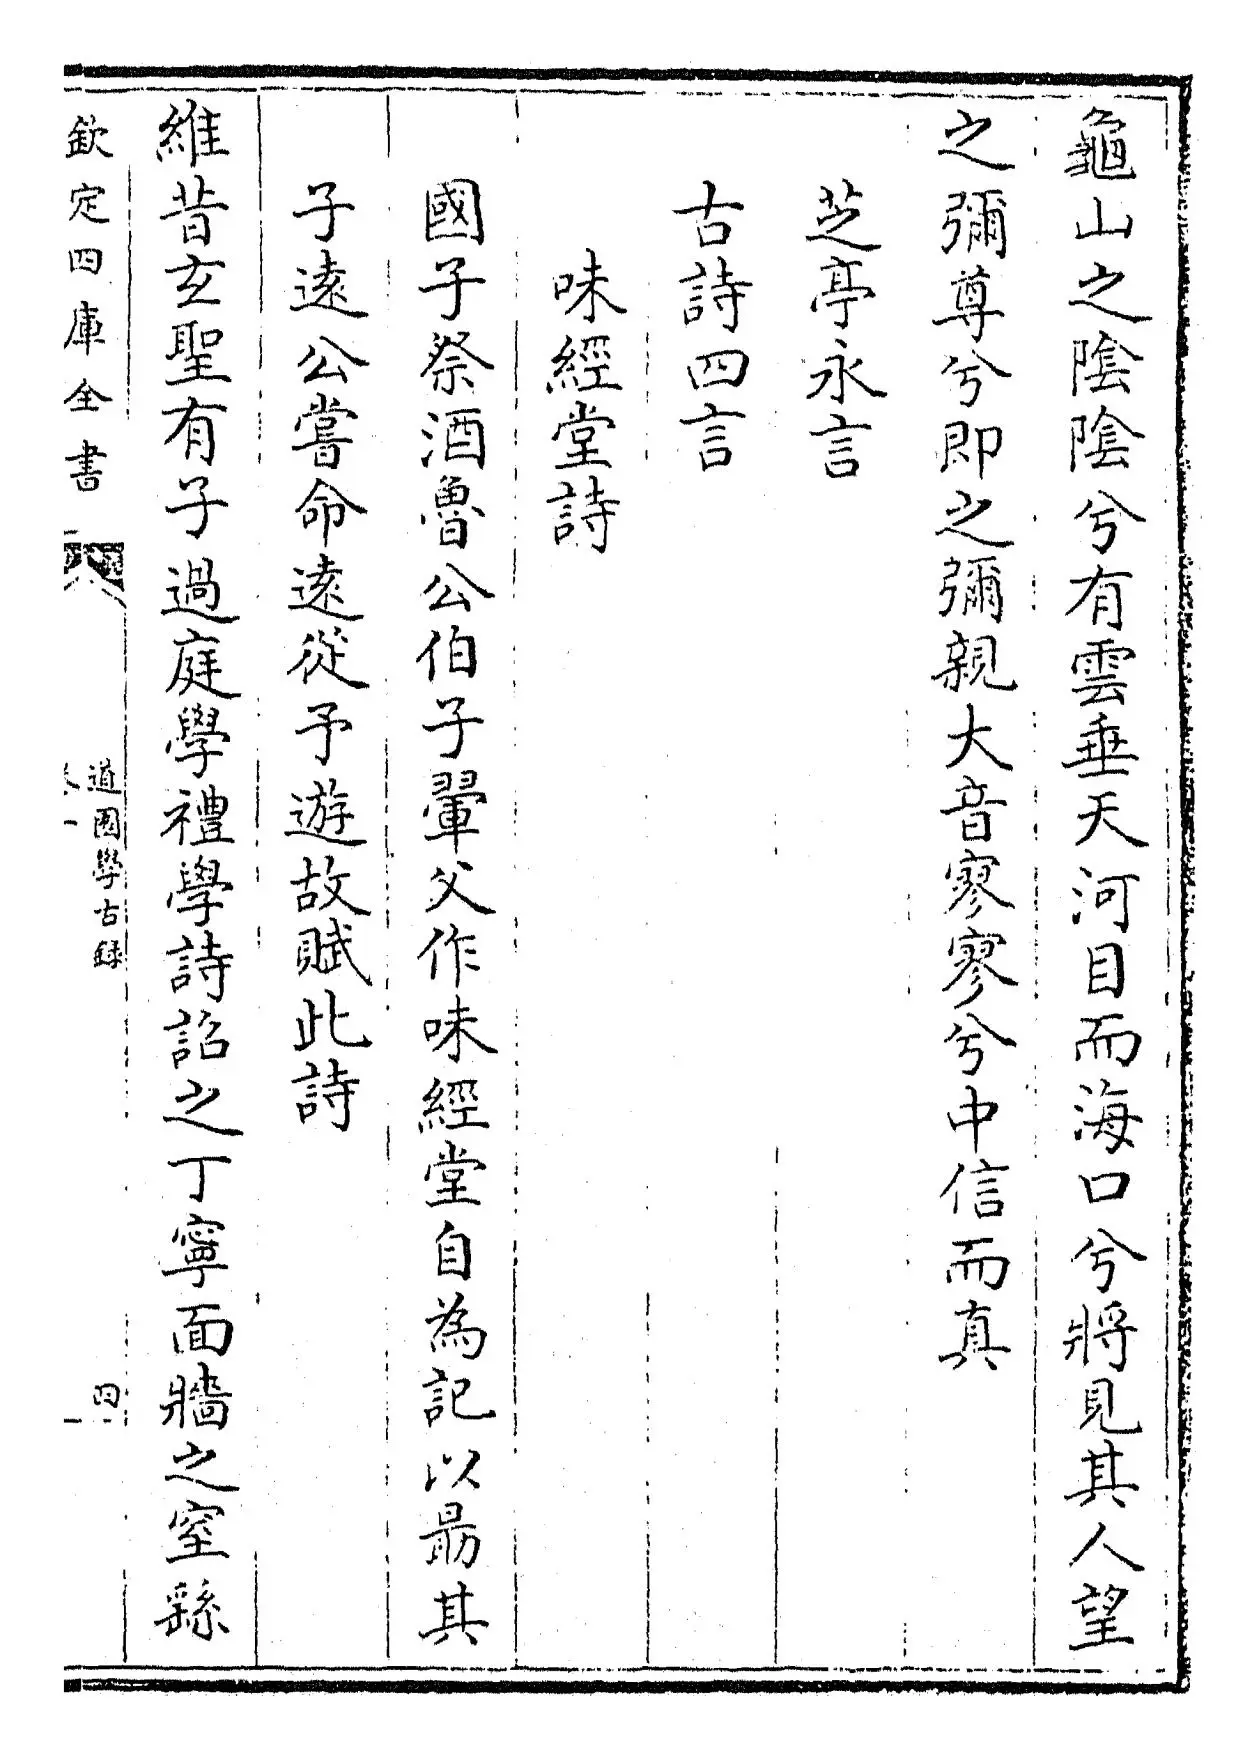 龜山之陰陰兮有雲垂天河目而海口兮將見其人望
之彌尊兮即之彌親大音寥寥兮中信而真
芝亭永言
古詩四言
味經堂詩
國子祭酒魯公伯子翬父作味經堂自為記以勗其
子遠公嘗命遠從予遊故賦此詩
維昔玄聖有子過庭學禮學詩詔之丁寧面牆之窒繇
欽定四庫全書
道園學古録
卷一
四